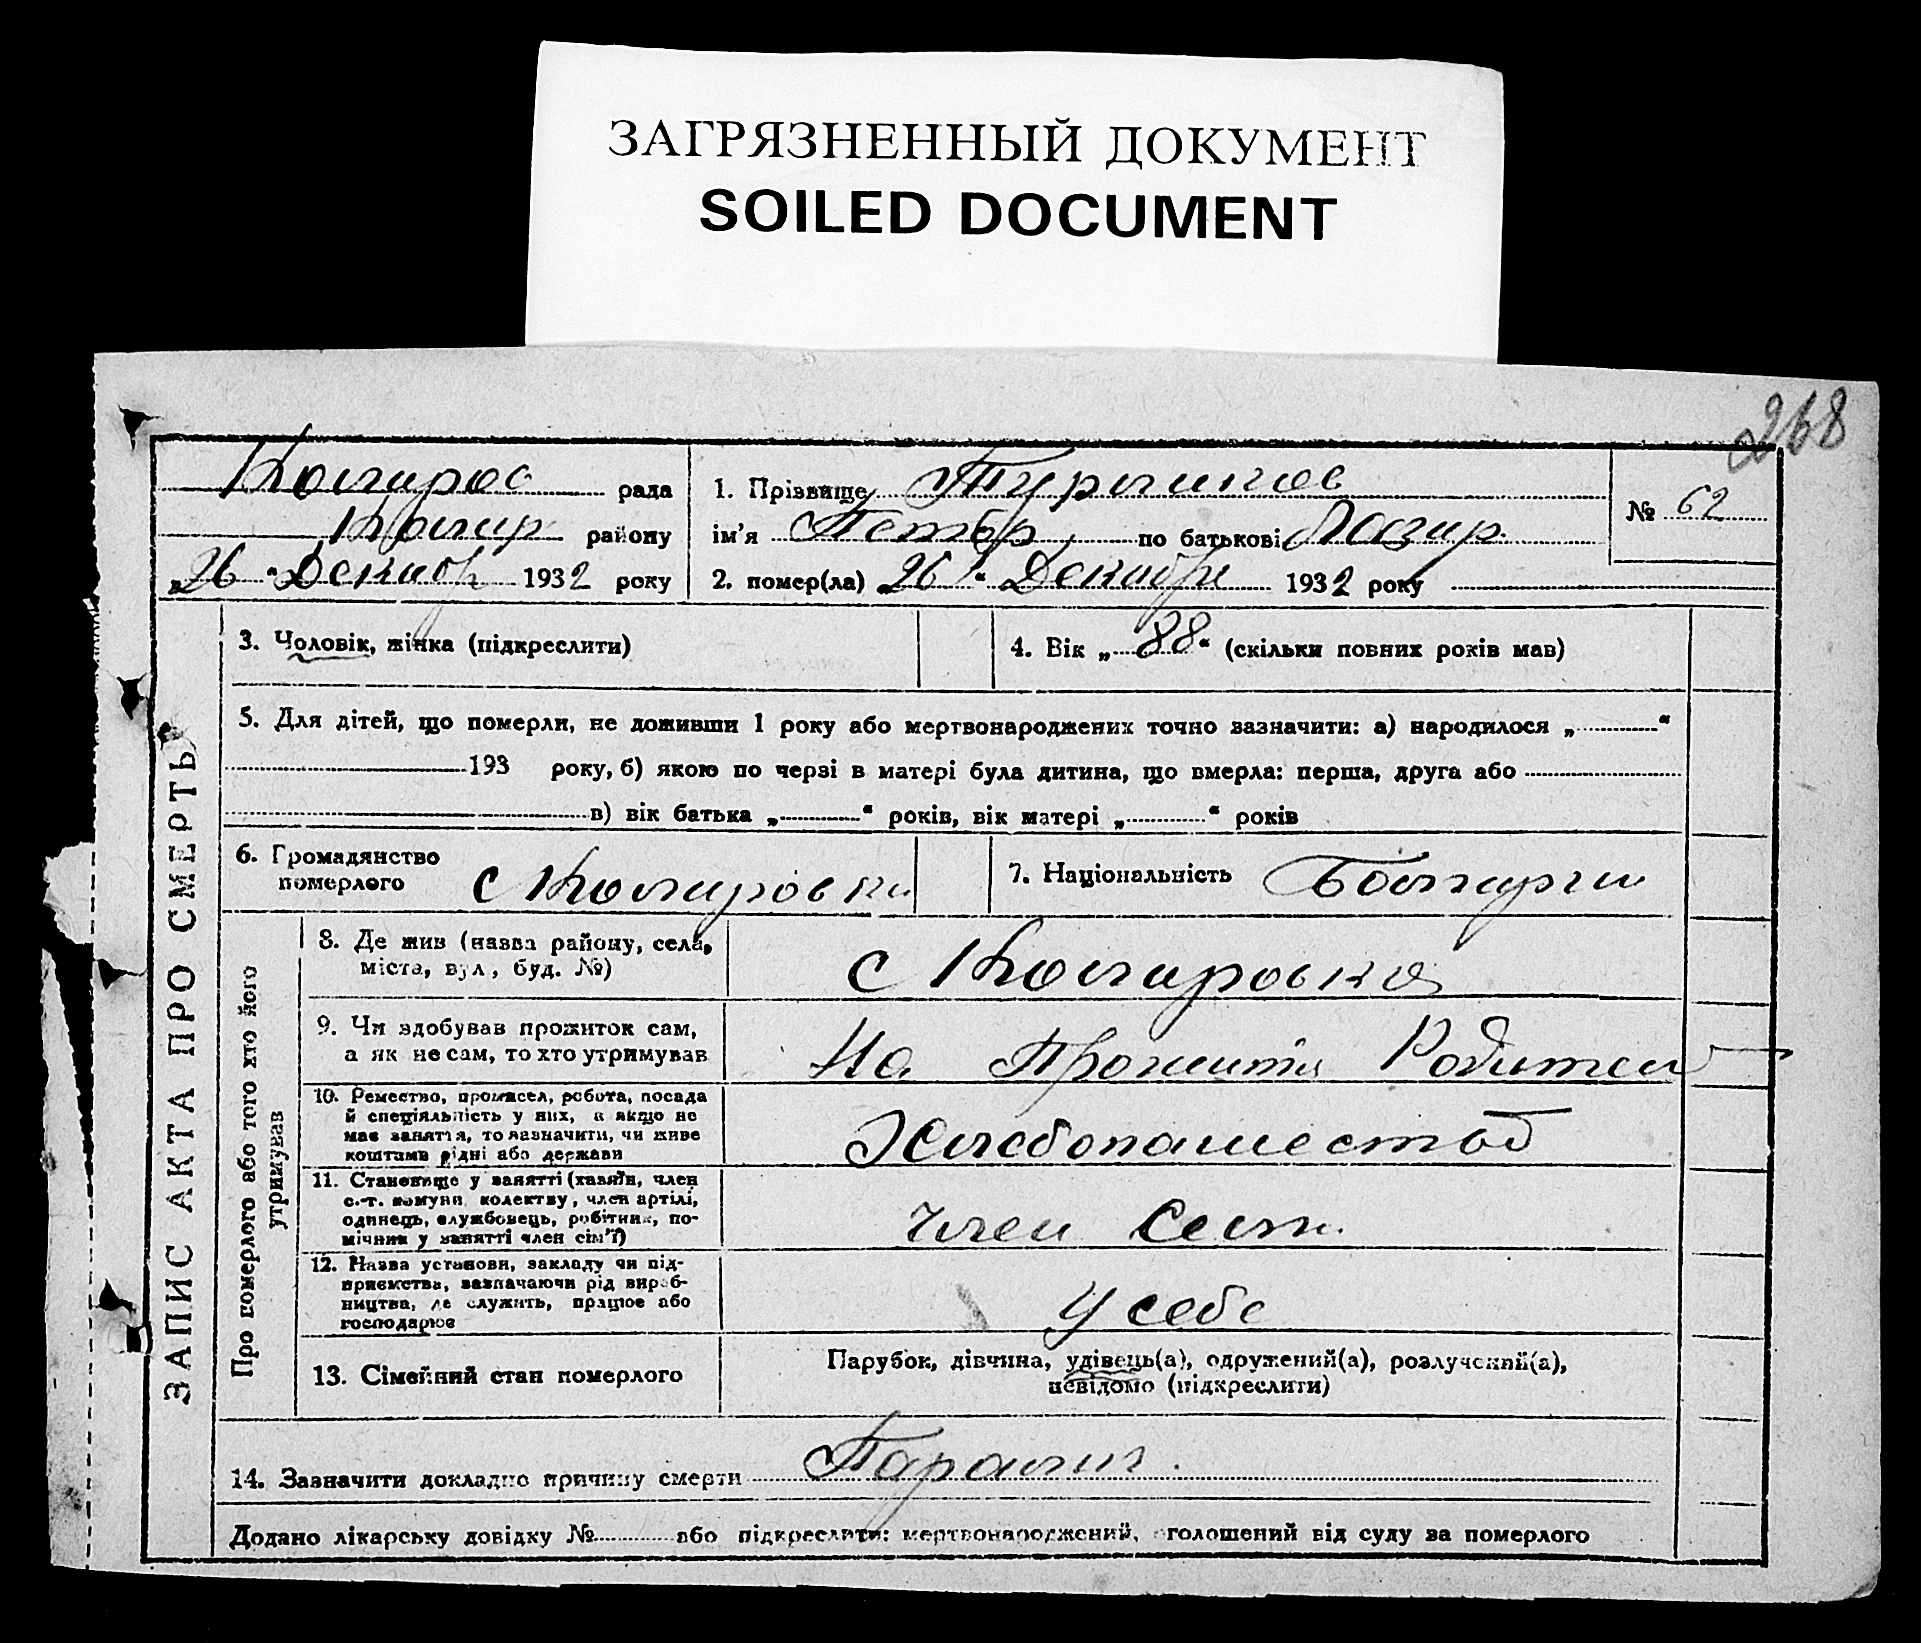 ЗАГРЯЗНЕННЫЙ ДОКУМЕНТ
SOILED DOCUMENT
268
Коларов рада
Колар району
„26“ Декабр 1932 року
1. Прізвище
ім'я Петър по батькові Лазар.
2. помер(ла) 26 “ Декабр 1932 року
№ 62
ЗАПИС АКТА ПРО СМЕРТЬ
3. Чоловік, жінка (підкреслити)
4. Вік „88“ (скільки повних років мав)
5. Для дітей, що померли, не доживши 1 року або мертвонароджених точно зазначити: а) народилося „ “
193 року, б) якою по черзі в матері була дитина, що вмерла: перша, друга або
в) вік батька „ “ років, вік матері „ “ років
6. Громадянство
померлого с Коларовки
7. Національність Болгарин
Про померлого або того хто його
утримував
8. Де жив (назва району, села,
міста, вул, буд. №)
с Коларовка
9. Чи здобував прожиток сам,
а як не сам, то хто утримував
На Прожити Родител
10. Ремество, промисел, робота, посада
й спеціяльність у них, а якщо не
має заняття, то зазначити, чи живе
коштами рідні або держави
Хлебопашество
11. Становище у занятті (хазяїн, член
с.-г. комуни, колективу, член артілі,
одинець, службовець, робітник, по-
мічник у занятті член сім'ї)
член Сем.
12. Назва установи, закладу чи під-
приємства, зазначаючи рід вироб-
ництва, де служить, працює або
господарює
У себе
13. Сімейний стан померлого
Парубок, дівчина, удівець(а), одружений(а), розлучений(а),
невідомо (підкреслити)
14. Зазначити докладно причину смерти Паралич.
Додано лікарську довідку № або підкреслити: мертвонароджений, оголошений від суду за померлого